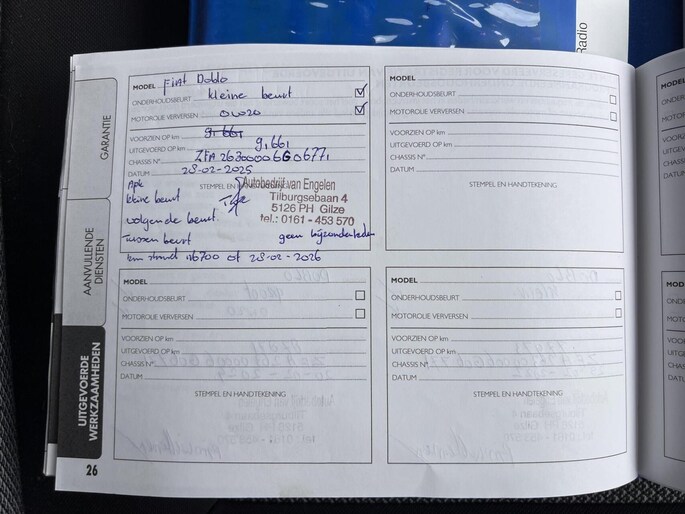 Radio
GARANTIE
AANVULLENDE
DIENSTEN
UITGEVOERDE
WERKZAAMHEDEN
26
MODEL Fiat Doblo
ONDERHOUDSBEURT kleine beurt
MOTOROLIE VERVERSEN 0W20
VOORZIEN OP km 91661
UITGEVOERD OP km 91661
CHASSIS N°. ZFA26300006G0677
DATUM 28-02-2025
STEMPEL EN
Apk
kleine beurt
volgende beurt
Tussen beurt geen bijzonderheden
km stand 116700 of 28-02-2026
Autobedrijf van Engelen
Tilburgsebaan 4
5126 PH Gilze
tel.: 0161 - 453 570
MODEL
ONDERHOUDSBEURT
MOTOROLIE VERVERSEN
VOORZIEN OP km
UITGEVOERD OP km
CHASSIS N°.
DATUM
STEMPEL EN HANDTEKENING
MODEL
ONDERHOUDSBEURT
MOTOROLIE VERVERSEN
VOORZIEN OP km
UITGEVOERD OP km
CHASSIS N°.
DATUM
STEMPEL EN HANDTEKENING
MODEL
ONDERHOUDSBEURT
MOTOROLIE VERVERSEN
VOORZIEN OP km
UITGEVOERD OP km
CHASSIS N°.
DATUM
STEMPEL EN HANDTEKENING